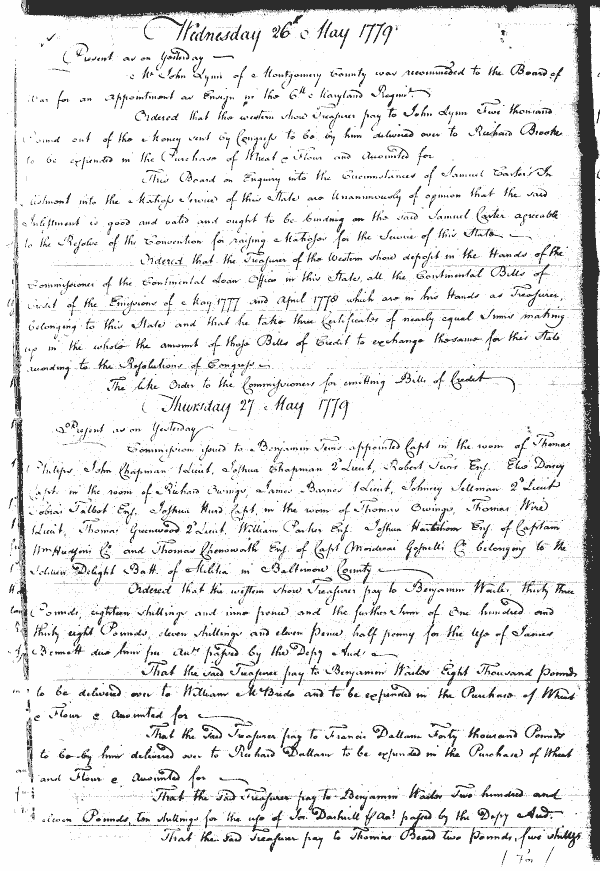 Wednesday 26th May 1779
Present as on Yesterday
Mr John Lynn of Montgomery County was recommended to the Board of
War for an Appointment as Ensign in the 6th Maryland Regimt
Ordered that the western shore Treasurer pay to John Lynn Five thousand
Pounds out of the Money sent by Congress to be by him delivered over to Richard Brooke
to be expended in the Purchase of Wheat & Flour and Accounted for
This Board on Enquiry into the Circumstances of Samuel Carter's In
listment into the Matross Service of this State are Unanimously of opinion that the said
Inlistment is good and valid and ought to be binding on the said Samuel Carter agreeable
to the Resolve of the Convention for raising Matrosses for the Service of this State
Ordered that the Treasurer of the Western shore deposit in the Hands of the
Commissioner of the Continental Loan Office in this State, all the Continental Bills of
Credit of the Emissions of May 1777 and April 1778 which are in his Hands as Treasurer,
belonging to this State and that he take three Certificates of nearly equal Sums making
up in the whole the amount of those Bills of Credit to exchange the same for this State
according to the Resolutions of Congress
The like Order to the Commissioners for emitting Bills of Credit
Thursday 27 May 1779
Present as on Yesterday
Commission issued to Benjamin appointed Capt in the room of Thomas
Philips, John Chapman 1 Lieut, Joshua Chapman 2d Lieut, Robert Ens. Elias Dorsey
Capt. in the room of Richard Owings, James Barnes 1 Lieut, Johnsey Sellman 2d Lieut
Tobias Talbot Ens. Joshua Hurd Capt. in the room of Thomas Owings, Thomas
1 Lieut, Thomas Greenwood 2d Lieut, William Parker Ens. Joshua Ens. of Captain
Wm Hudson's Co and Thomas Chenowath Ens. of Capt Mordecai Co belonging to the
Soldiers Delight Batt. of Militia in Baltimore County
Ordered that the western shore Treasurer pay to Benjamin Wailes thirty three
Pounds, eighteen shillings and nine pence and the further Sum of One hundred and
thirty eight Pounds, eleven shillings and eleven Pence half penny for the Use of James
Bennett due him per Acct passed by the Depy Audr
That the said Treasurer pay to Benjamin Wailes Eight Thousand Pounds
to be delivered over to William McBride and to be expended in the Purchase of Wheat
& Flour & Accounted for
That the said Treasurer pay to Francis Dallam Forty thousand Pounds
to be by him delivered over to Richard Dallam to be expended in the Purchase of Wheat
and Flour & Accounted for
That the said Treasurer pay to Benjamin Wailes Two hundred and
eleven Pounds, ten shillings for the use of Jos. Dashiell p Acct passed by the Depy Aud.
That the said Treasurer pay to Thomas Beard two Pounds, five shillgs